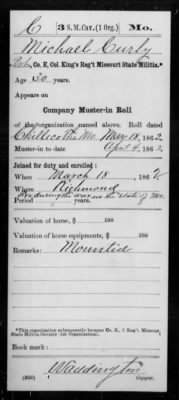 C 3 S. M. Cav. (1 Org.) Mo.
Michael Curly
Co. R, Col. King's Reg't Missouri State Militia.*
Age 30 years.
Appears on
Company Muster-in Roll
of the organization named above. Roll dated
Chillicothe Mo. May 18, 1862
Muster-in to date April 4, 1862
Joined for duty and enrolled:
When March 18, 1862
Where Richmond
Period during the war in the state of Mo. years
Valuation of horse, $ 100
Valuation of horse equipments, $ 100
Remarks: Mounted
*This organization subsequently became Co. K, 3 Reg't Missouri
State Militia Cavalry (1st Organization).
Book mark:
Waddington
(356) Copyist.